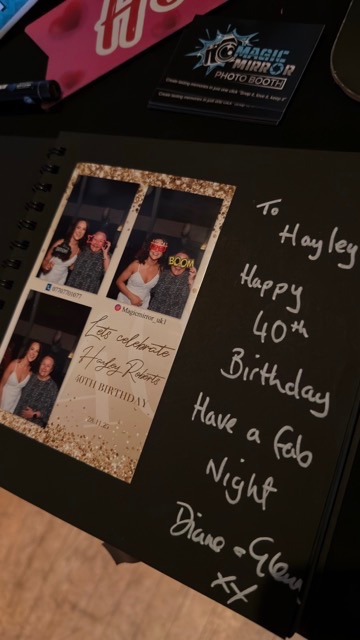 H
MAGIC
MIRROR
PHOTO BOOTH
BOOM
Magicmirror_uk1
Lets celebrate
Hayley Roberts
40TH BIRTHDAY
To
Hayley
Happy
40th
Birthday
Have a fab
Night
Diane & Glenn
xx